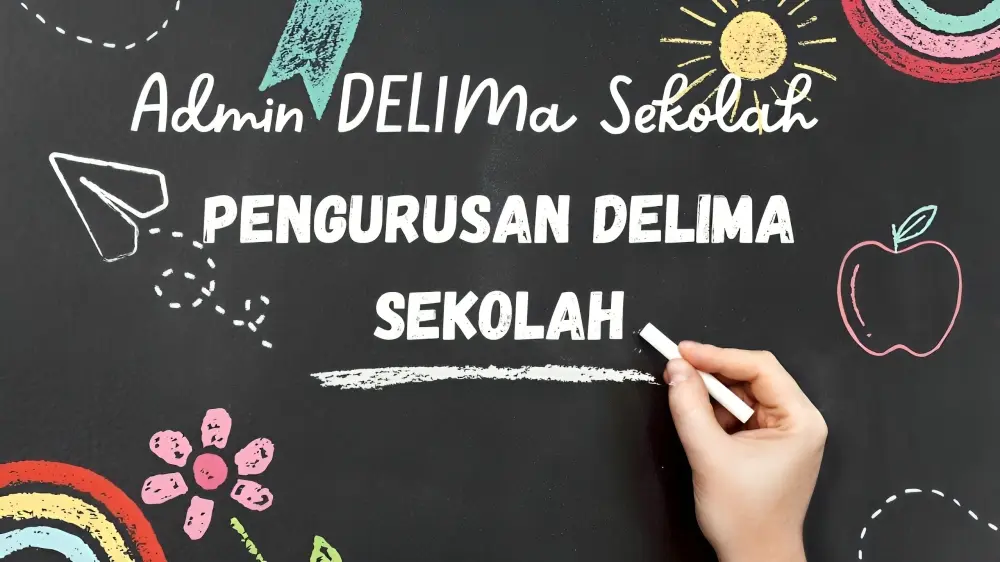 Admin DELIMa Sekolah
PENGURUSAN DELIMA
SEKOLAH